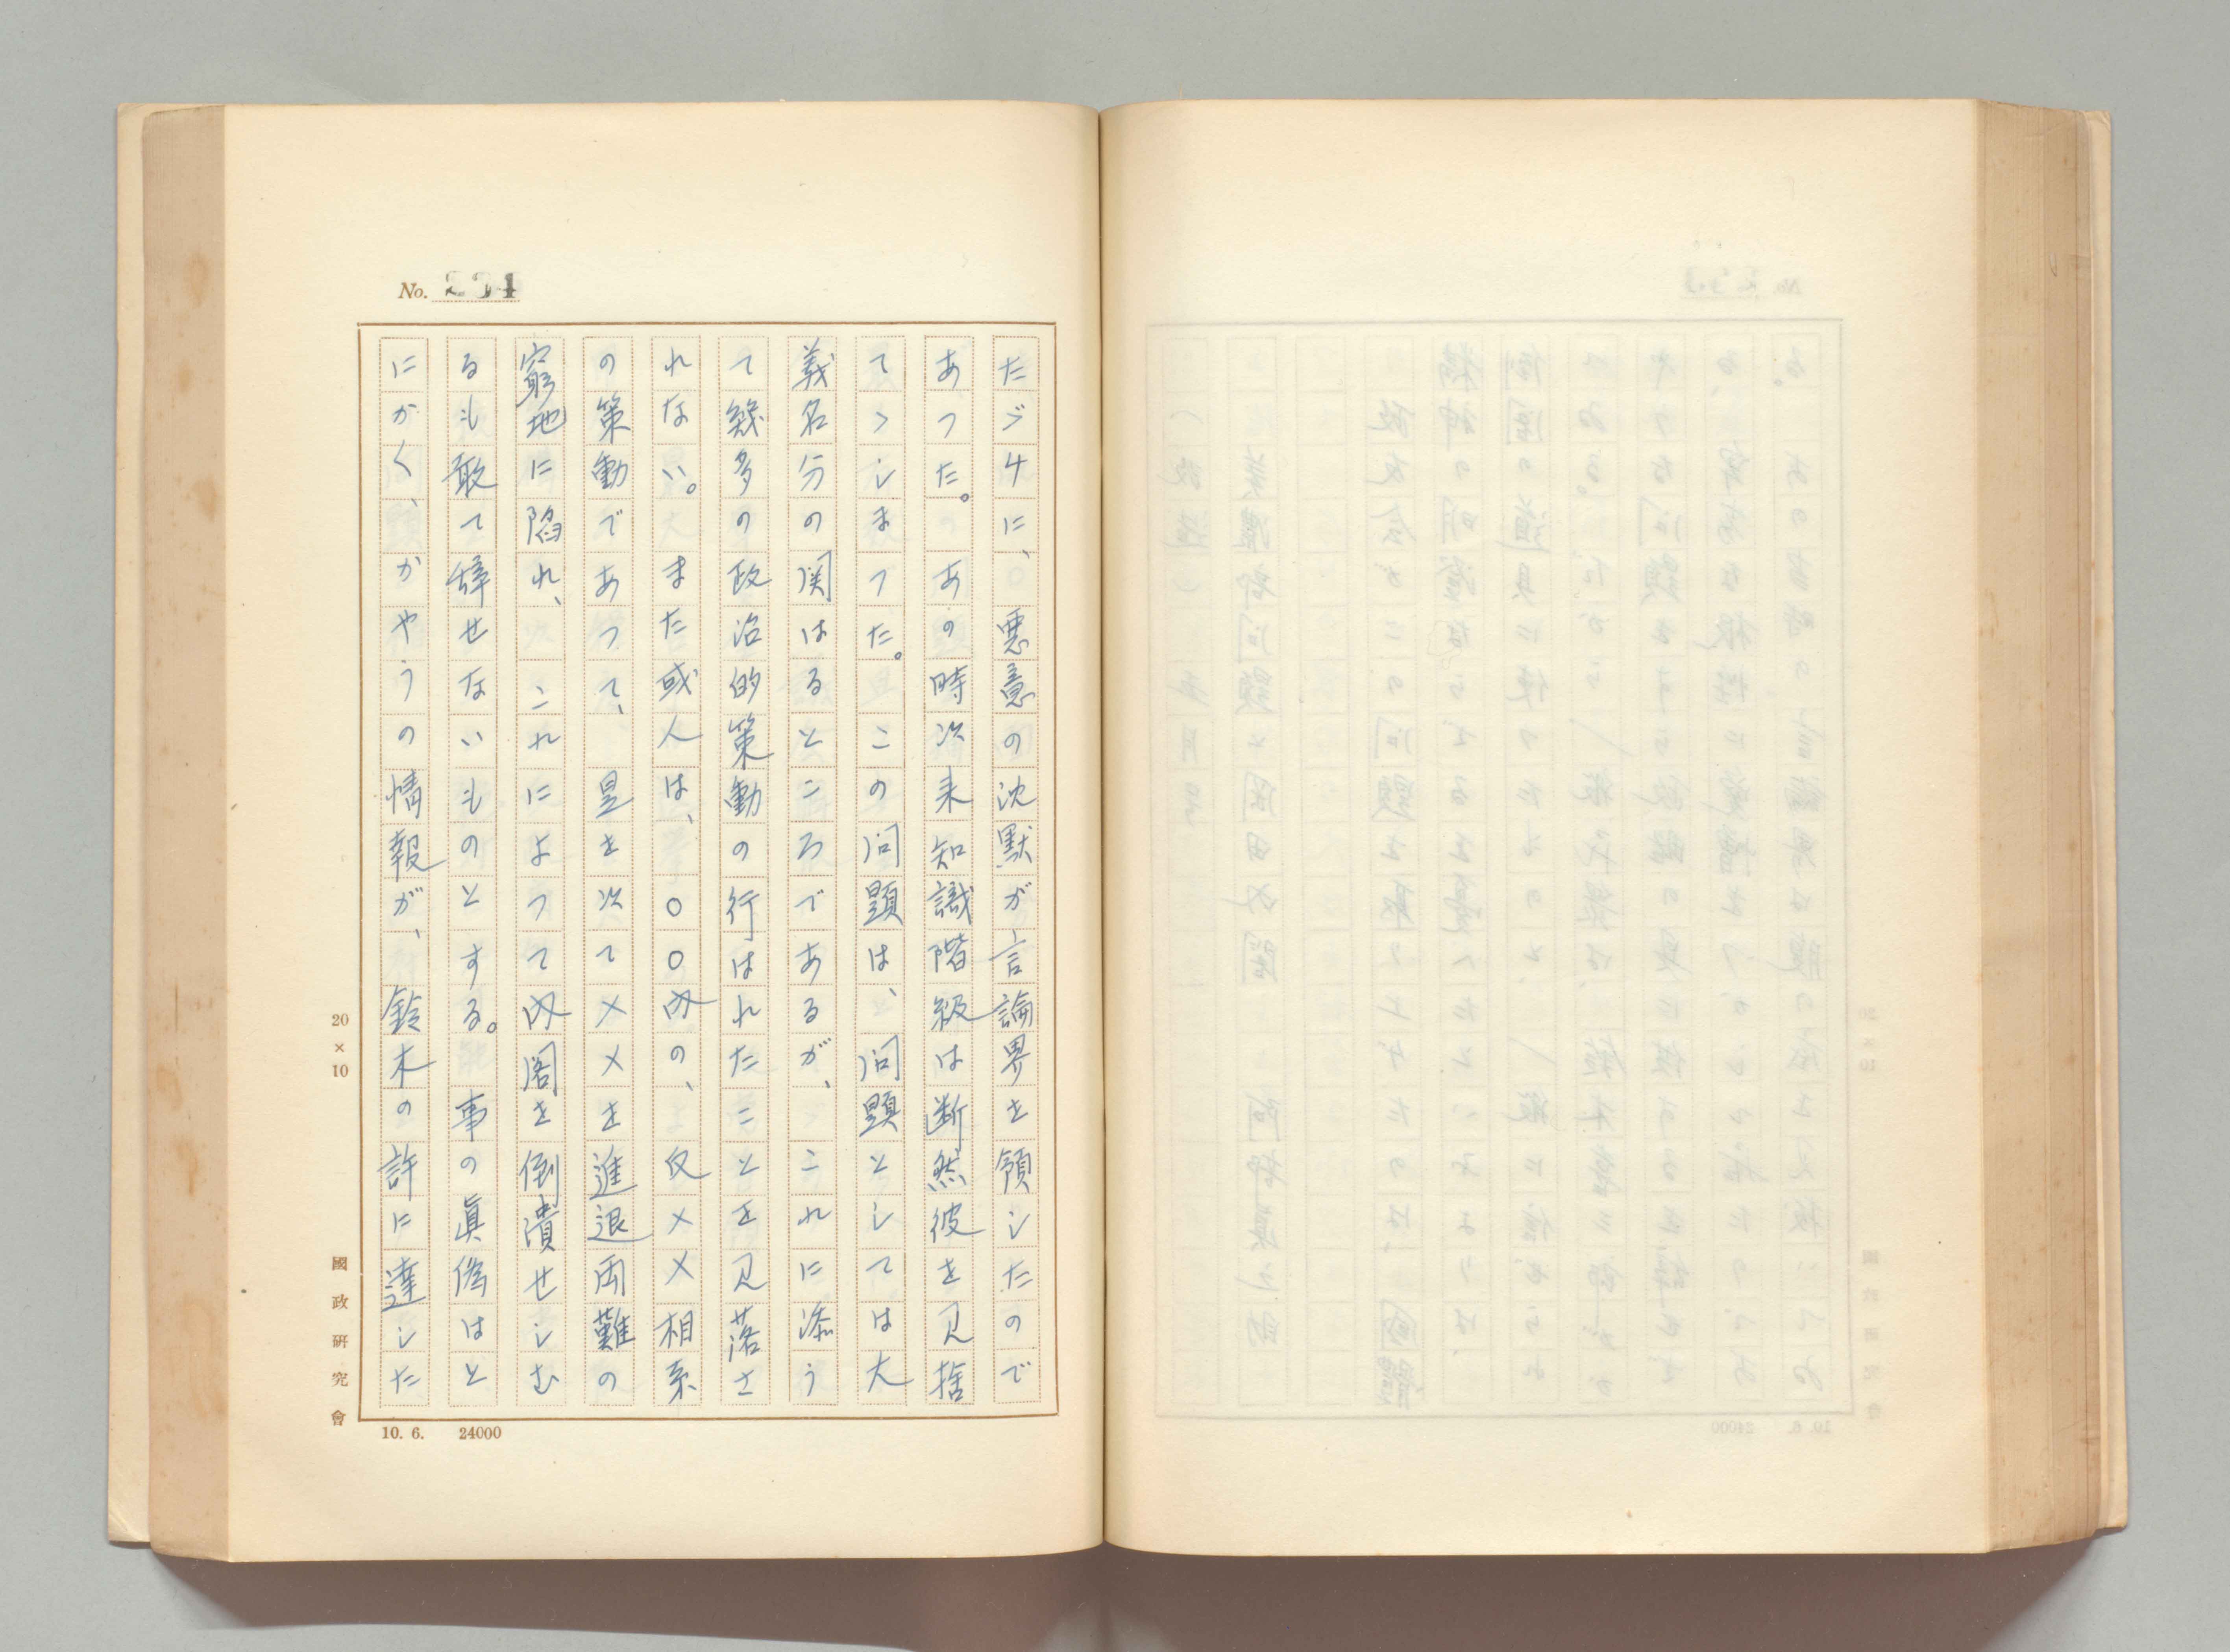 No. 234
たゞケに、悪意の沈黙が言論界を領したので
あつた。あの時次来知識階級は断然彼を見捨
てゝしまつた。この問題は、問題としては大
義名分の関はるところであるが、これに添う
て幾多の政治的策動の行はれたことを見落さ
れない。また或人は、〇〇内の、反××相系
の策動であつて、是を次て××を進退両難の
窮地に陥れ、これによつて内閣を倒潰せしむ
るも敢て辞せないものとする。事の眞偽はと
にかく、かやうの情報が、鈴木の許に達した
20×10
國政研究會
10. 6. 24000